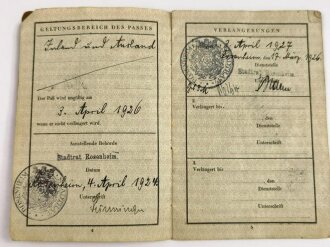 GELTUNGSBEREICH DES PASSES
Inland und Ausland
Der Paß wird ungültig am
3. April 1926
wenn er nicht verlängert wird.
Ausstellende Behörde
Stadtrat Rosenheim.
Datum
Rosenheim, 4. April 1924.
Unterschrift
4
VERLÄNGERUNGEN
3. April 1927
Rosenheim, den 17. März 1926.
Dienststelle
Stadtrat Rosenheim
Unterschrift
2.
Verlängert bis
den
Dienststelle
Unterschrift
3.
Verlängert bis
den
Dienststelle
Unterschrift
5